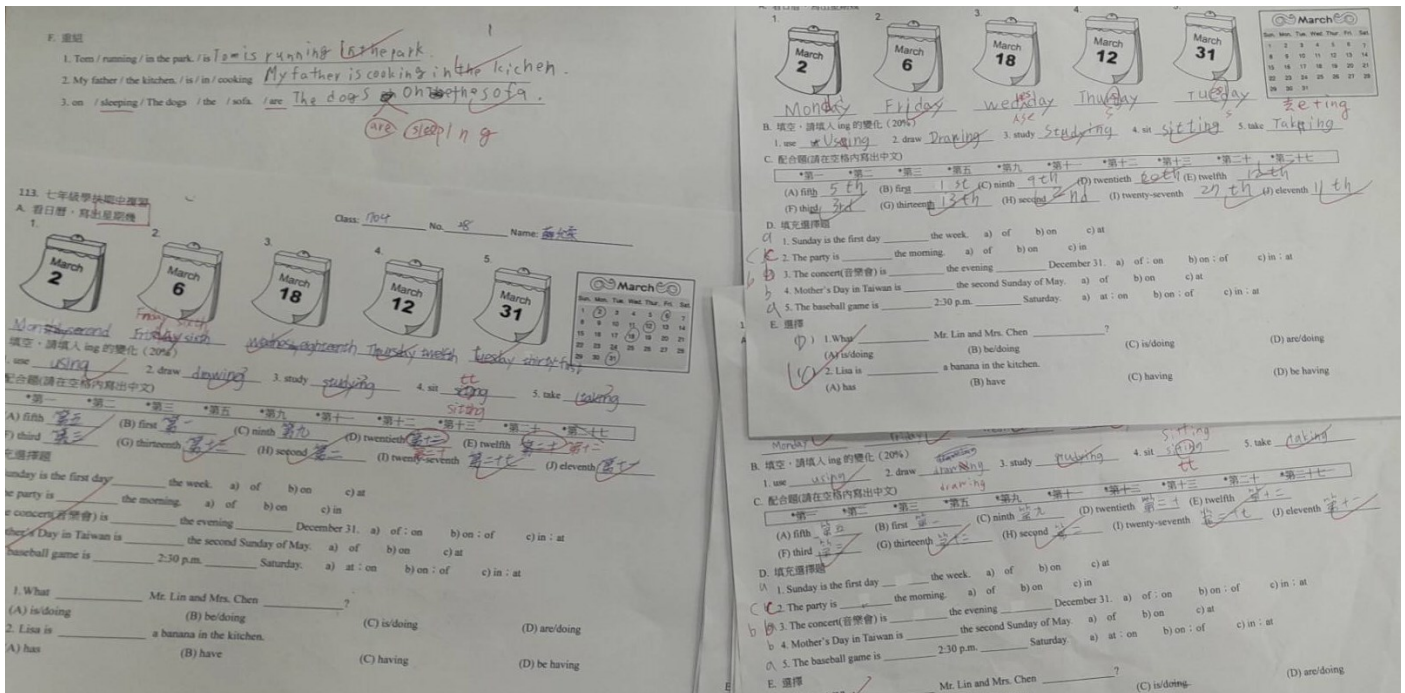 F. 重組
1. Tom / running / in the park. / is Tom is running in the park.
2. My father / the kitchen. / is / in / cooking My father is cooking in the kichen.
3. on / sleeping / The dogs / the / sofa. / are The dogs on the sofa.
are sleeping
113. 七年級學扶期中複習
A. 看日曆,寫出星期幾
Class: 704 No. 28 Name:
1. 2. 3. 4. 5.
March 2
March 6
March 18
March 12
March 31
March
Sun. Mon. Tue. Wed. Thur. Fri. Sat.
1 2 3 4 5 6 7
8 9 10 11 12 13 14
15 16 17 18 19 20 21
22 23 24 25 26 27 28
29 30 31
填空,請填入 ing 的變化(20%)
use using 2. draw drawing 3. study studying 4. sit 5. take taking
tt
sitting
配合題(請在空格內寫出中文)
*第一 *第二 *第三 *第五 *第九 *第十一 *第十二 *第十三 *第二十 *第二十七
A) fifth 第五 (B) first 第一 (C) ninth 第九 (D) twentieth 第十二 (E) twelfth 第二十 第十二
third 第三 (G) thirteenth 第十三 (H) second 第二 (I) twenty-seventh 第二十七 (J) eleventh 第十一
充選擇題
unday is the first day the week. a) of b) on c) at
e party is the morning. a) of b) on c) in
e concert(音樂會) is the evening December 31. a) of;on b) on;of c) in;at
ther's Day in Taiwan is the second Sunday of May. a) of b) on c) at
baseball game is 2:30 p.m. Saturday. a) at;on b) on;of c) in;at
1. What Mr. Lin and Mrs. Chen ?
(A) is/doing (B) be/doing (C) is/doing (D) are/doing
2. Lisa is a banana in the kitchen.
A) has (B) have (C) having (D) be having
1. 2. 3. 4.
March 2
March 6
March 18
March 12
March 31
March
Sun. Mon. Tue. Wed. Thur. Fri. Sat.
1 2 3 4 5 6 7
8 9 10 11 12 13 14
15 16 17 18 19 20 21
22 23 24 25 26 27 28
29 30 31
Monday Friday
B. 填空,請填入 ing 的變化(20%)
1. use Using 2. draw Drawing 3. study Studying 4. sit sitting 5. take
C. 配合題(請在空格內寫出中文)
*第一 *第二 *第三 *第五 *第九 *第十一 *第十二 *第十三 *第二十 *第二十七
(A) fifth 5th (B) first 1st (C) ninth 9th (D) twentieth 20th (E) twelfth 12th
(F) third 3rd (G) thirteenth 13th (H) second 2nd (I) twenty-seventh 27th (J) eleventh 11th
D. 填充選擇題
a 1. Sunday is the first day the week. a) of b) on c) at
c 2. The party is the morning. a) of b) on c) in
b 3. The concert(音樂會) is the evening December 31. a) of;on b) on;of c) in;at
b 4. Mother's Day in Taiwan is the second Sunday of May. a) of b) on c) at
a 5. The baseball game is 2:30 p.m. Saturday. a) at;on b) on;of c) in;at
E. 選擇
(D) 1. What Mr. Lin and Mrs. Chen ?
(A) is/doing (B) be/doing (C) is/doing (D) are/doing
(C) 2. Lisa is a banana in the kitchen.
(A) has (B) have (C) having (D) be having
Monday Friday
B. 填空,請填入 ing 的變化(20%)
1. use using 2. draw 3. study studying 4. sit 5. take taking
drawing
sitting
tt
C. 配合題(請在空格內寫出中文)
*第一 *第二 *第三 *第五 *第九 *第十一 *第十二 *第十三 *第二十 *第二十七
(A) fifth 第五 (B) first 第一 (C) ninth 第九 (D) twentieth 第二十 (E) twelfth 第十二
(F) third 第三 (G) thirteenth 第十三 (H) second 第二 (I) twenty-seventh 第二十七 (J) eleventh 第十一
D. 填充選擇題
a 1. Sunday is the first day the week. a) of b) on c) at
c 2. The party is the morning. a) of b) on c) in
b 3. The concert(音樂會) is the evening December 31. a) of;on b) on;of c) in;at
b 4. Mother's Day in Taiwan is the second Sunday of May. a) of b) on c) at
a 5. The baseball game is 2:30 p.m. Saturday. a) at;on b) on;of c) in;at
E. 選擇
Mr. Lin and Mrs. Chen ?
(C) is/doing (D) are/doing